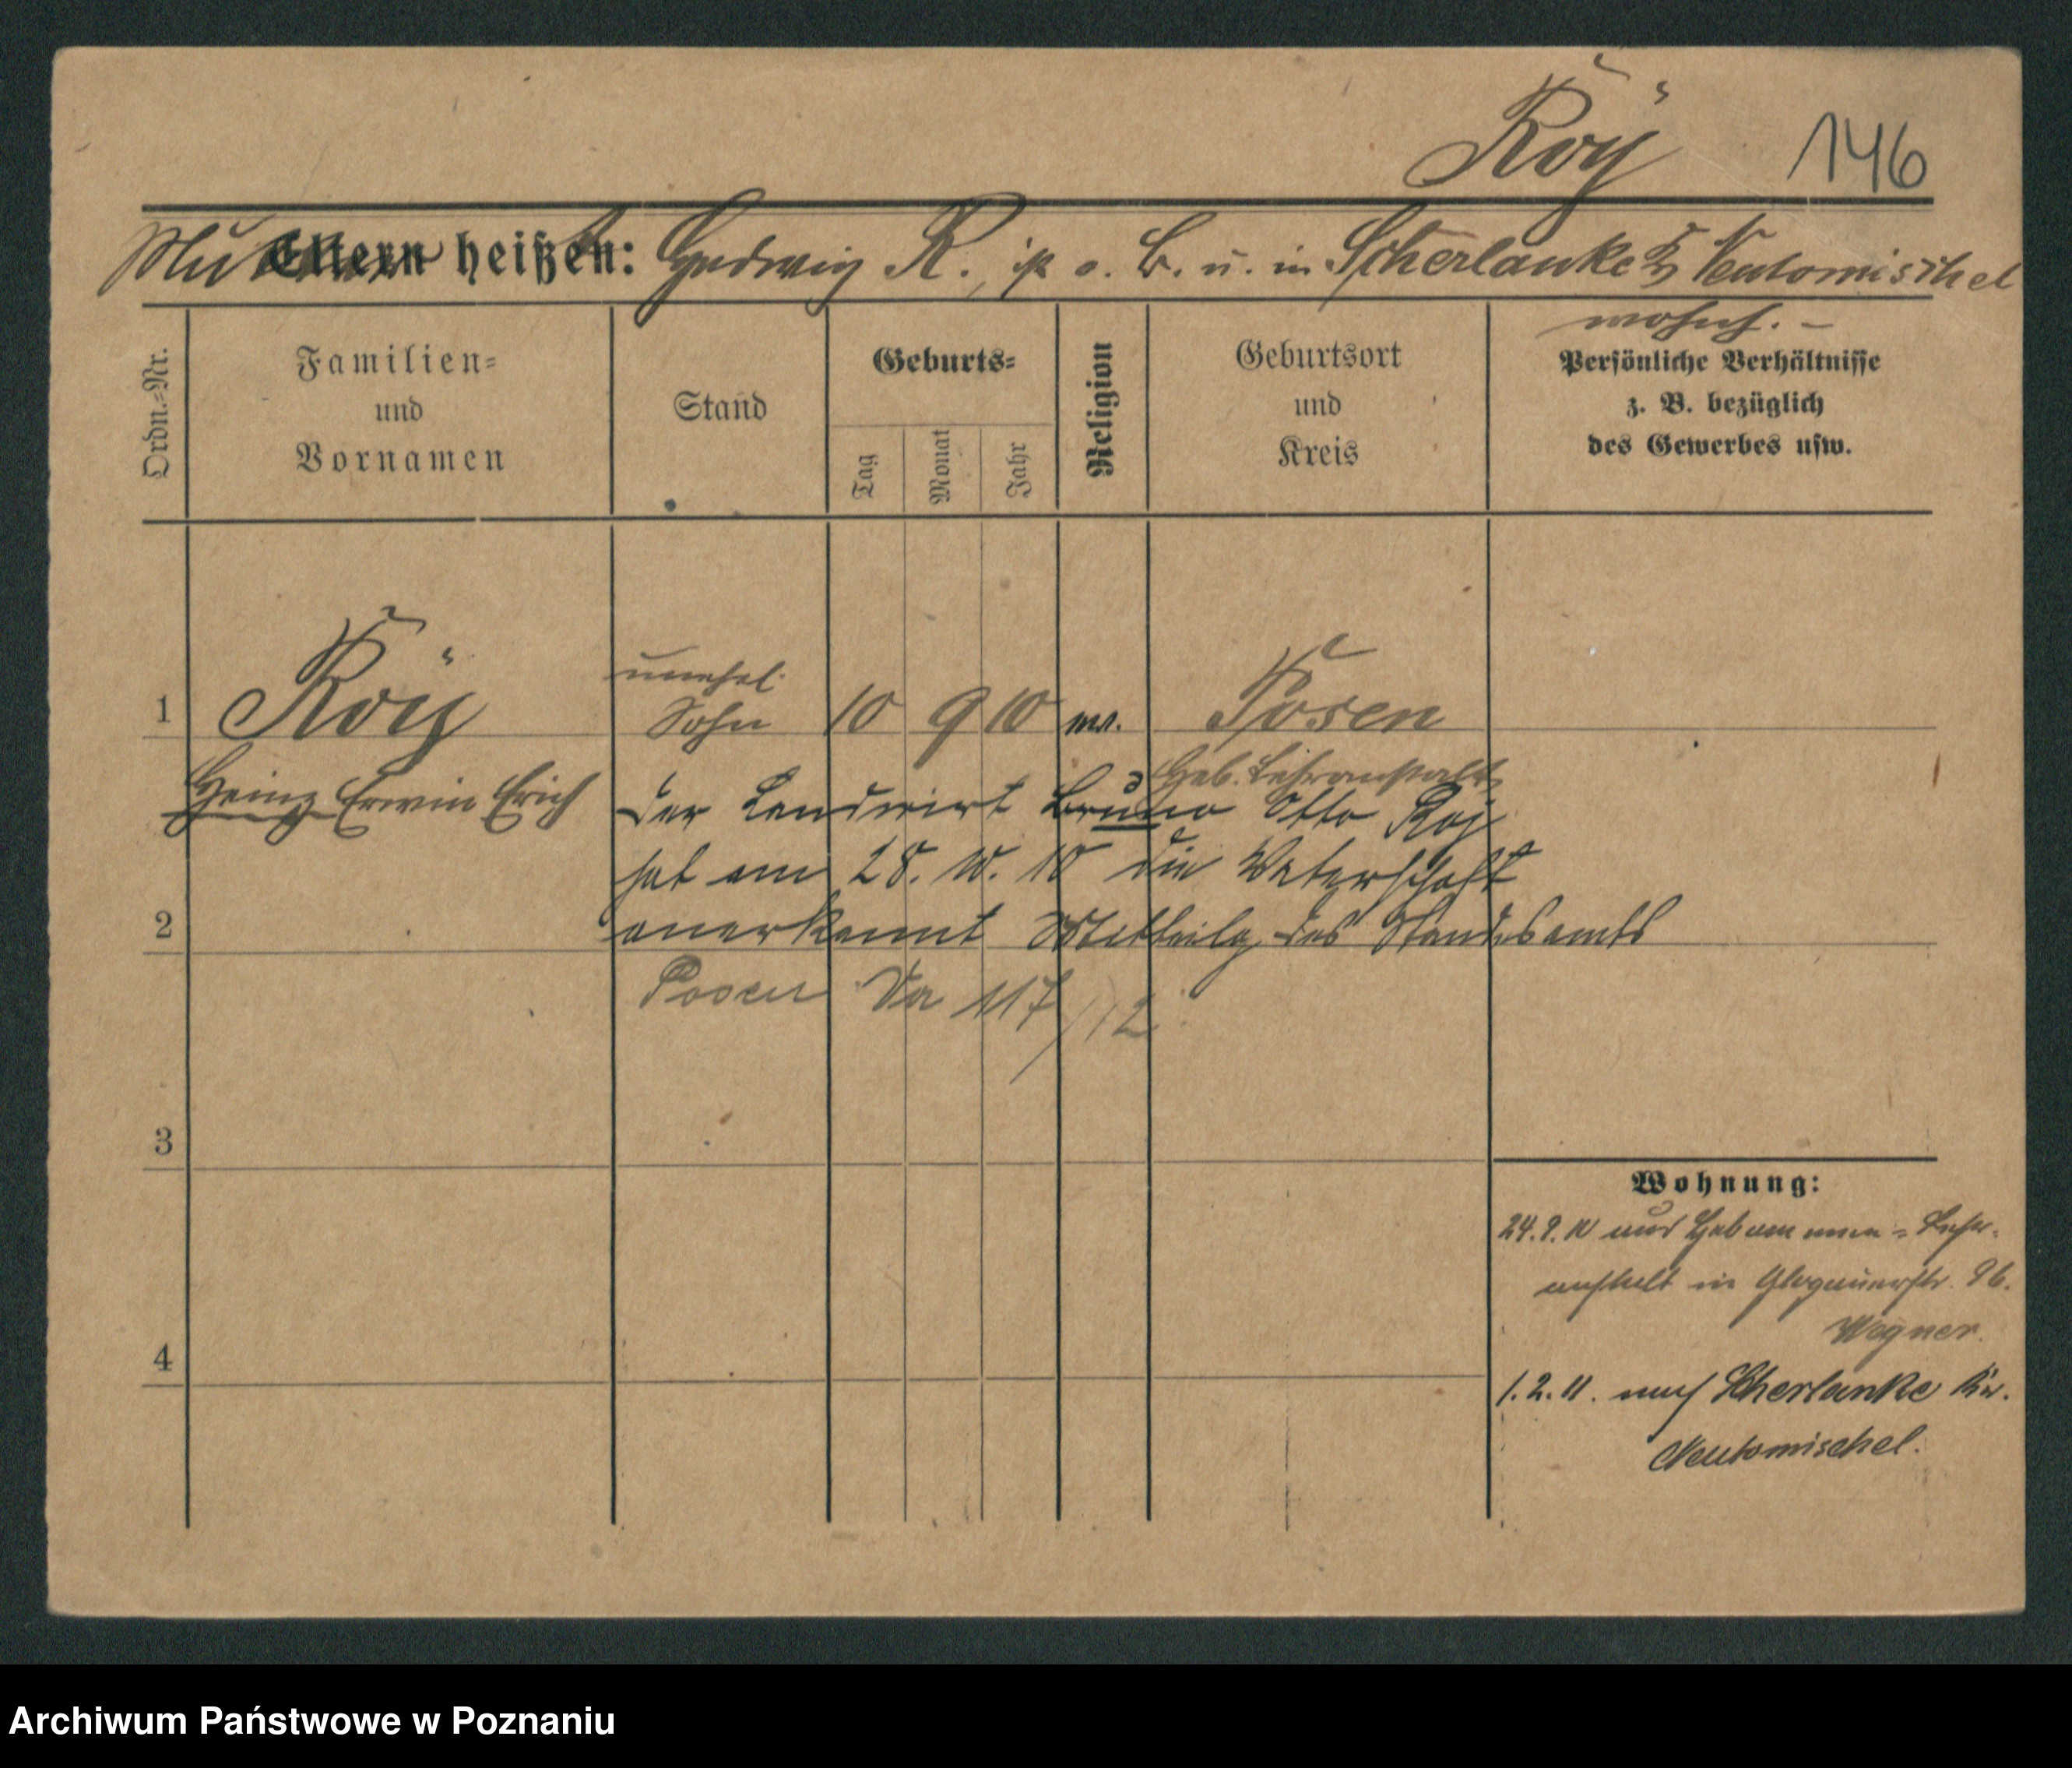 Roÿ 146
Mutter heißen: Hedwig R., ist o. B. u. in Scherlanke Neutomischel
wohnh. -
Ordn.=Nr.
Familien=
und
Vornamen
Stand
Geburts=
Tag
Monat
Jahr
Religion
Geburtsort
und
Kreis
Persönliche Verhältnisse
z. B. bezüglich
des Gewerbes usw.
unehel.
1 Roÿ Sohn 10 9 10 ev. Posen
Heb. Lehranstalt
Heinz Erwin Erich
Der Landwirt Bruno Otto Roy
hat am 28. 10. 10 die Vaterschaft
2 anerkannt Mitteilg des Standesamts
Posen 117/12
3
4
Wohnung:
24.9.10 aus Hebammen=Lehr-
anstalt in Glogauerstr. 96.
Wegner.
1.2.11. nach Scherlanke Kr.
Neutomischel.
Archiwum Państwowe w Poznaniu